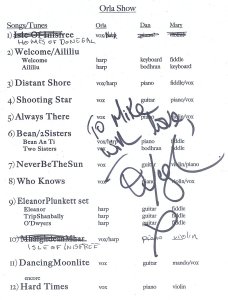 Orla Show
Songs/Tunes Orla Dan Mary
1) Isle Of Inisfree vox/harp piano
HOMES OF DONEGAL
2) Welcome/Aililiu
Welcome harp keyboard fiddle
Aililiu harp bodhran keyboard
3) Distant Shore vox/harp piano fiddle/vox
4) Shooting Star vox guitar piano/vox
5) Always There vox/harp piano
6) Bean/2Sisters
Bean An Ti vox/harp piano fiddle
Two Sisters vox bodhran fiddle
To Mike
with love,
7) NeverBeTheSun vox guitar violin/piano
8) Who Knows vox piano violin/vox
9) EleanorPlunkett set
Eleanor harp guitar fiddle
TripShanbally harp guitar fiddle
O'Dwyers harp guitar fiddle
Orla
X
10) vox/harp piano violin
ISLE OF INISFREE
11) DancingMoonlite vox guitar mando/vox
encore
12) Hard Times vox piano violin/vox